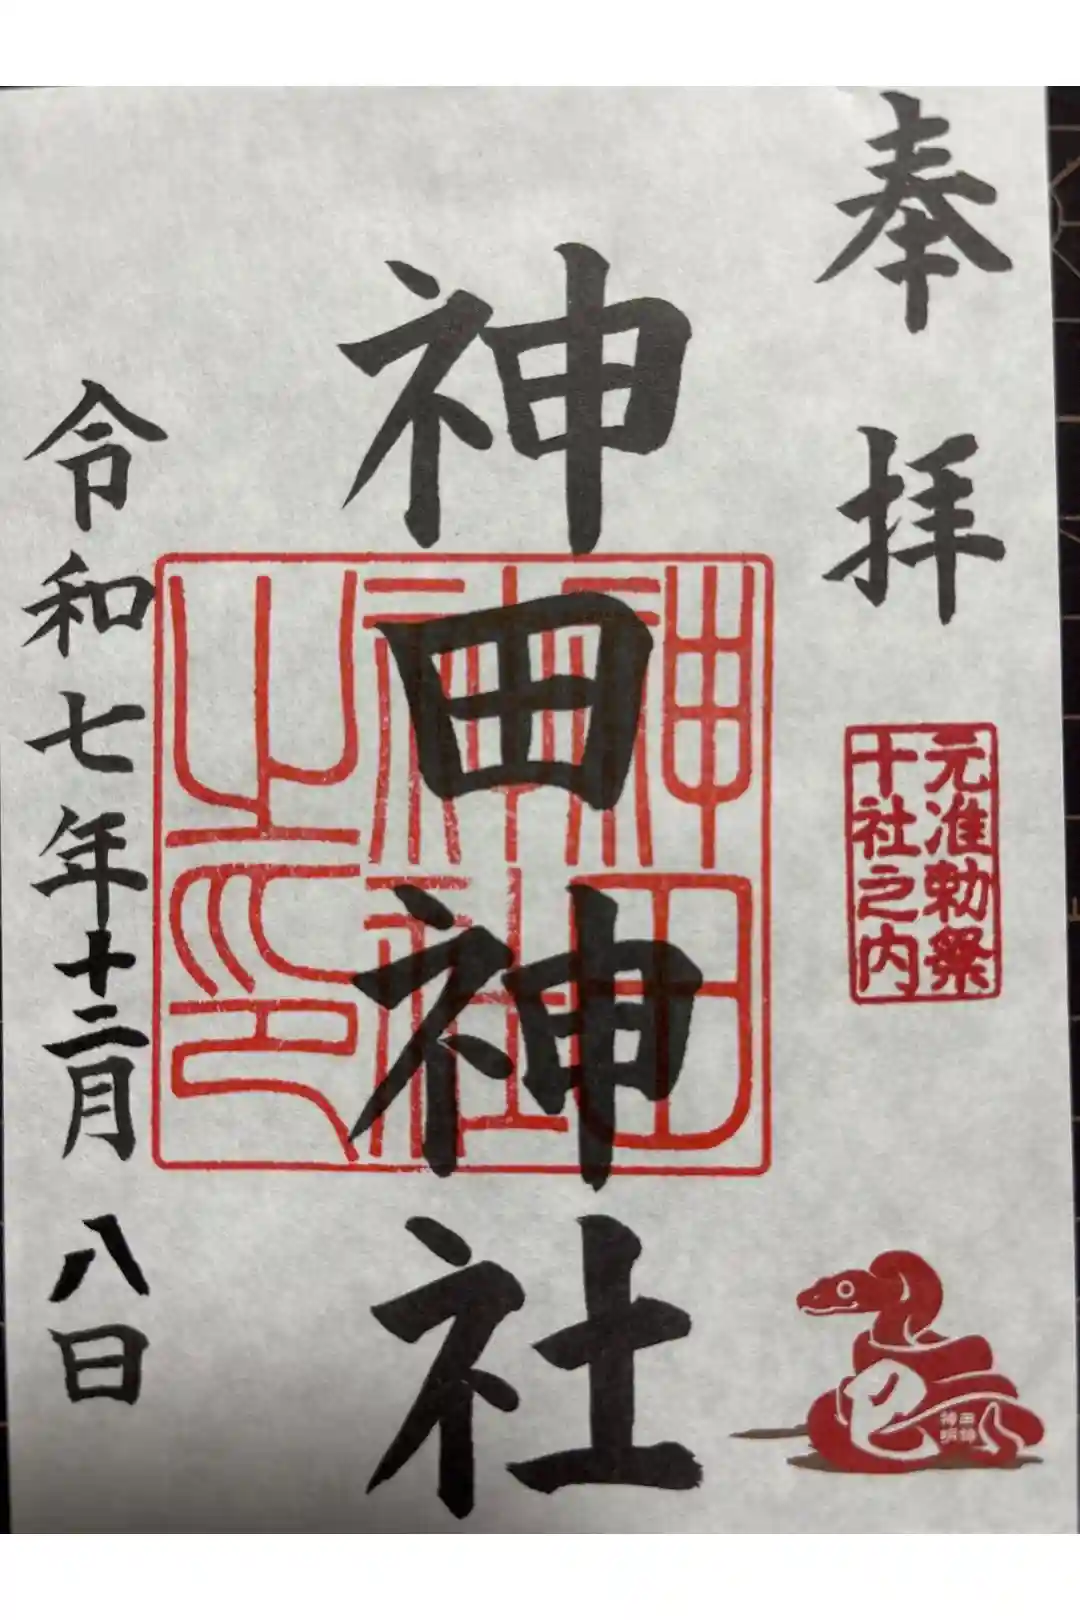 奉拝
元准勅祭
十社之内
神田神社
神田
神社
之印
令和七年十二月八日
巳